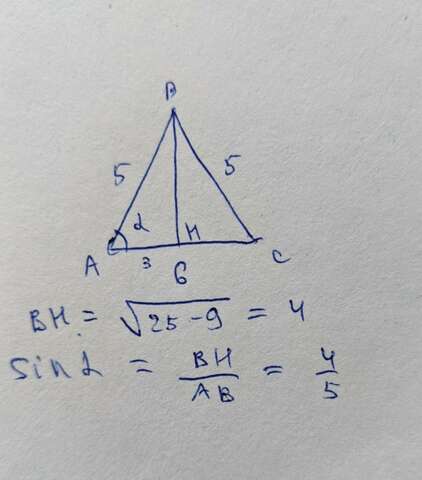 B
5 5
α
A H C
3
6
BH = √25-9 = 4
sin α = BH/AB = 4/5